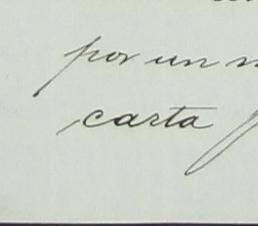 por un
carta